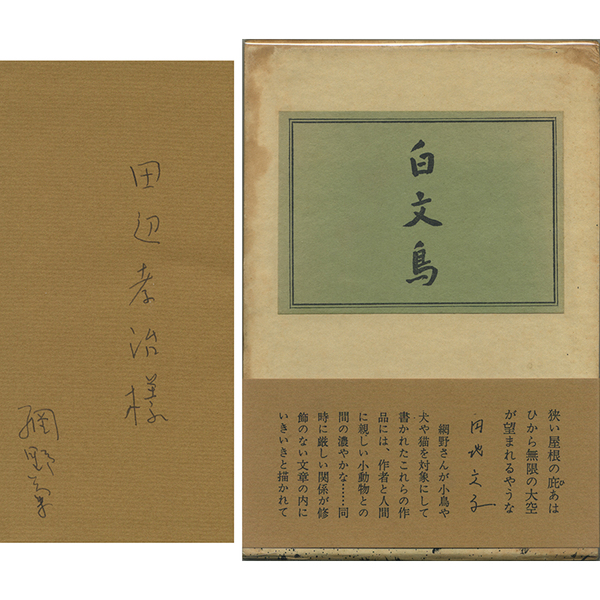 田辺孝治様
網野菊
白文鳥
狭い屋根の庇あは
ぴ
ひから無限の大空
が望まれるやうな
円地文子
網野さんが小鳥や
犬や猫を対象にして
書かれたこれらの作
品には、作者と人間
に親しい小動物との
間の濃やかな……同
時に厳しい関係が修
飾のない文章の内に
いきいきと描かれて